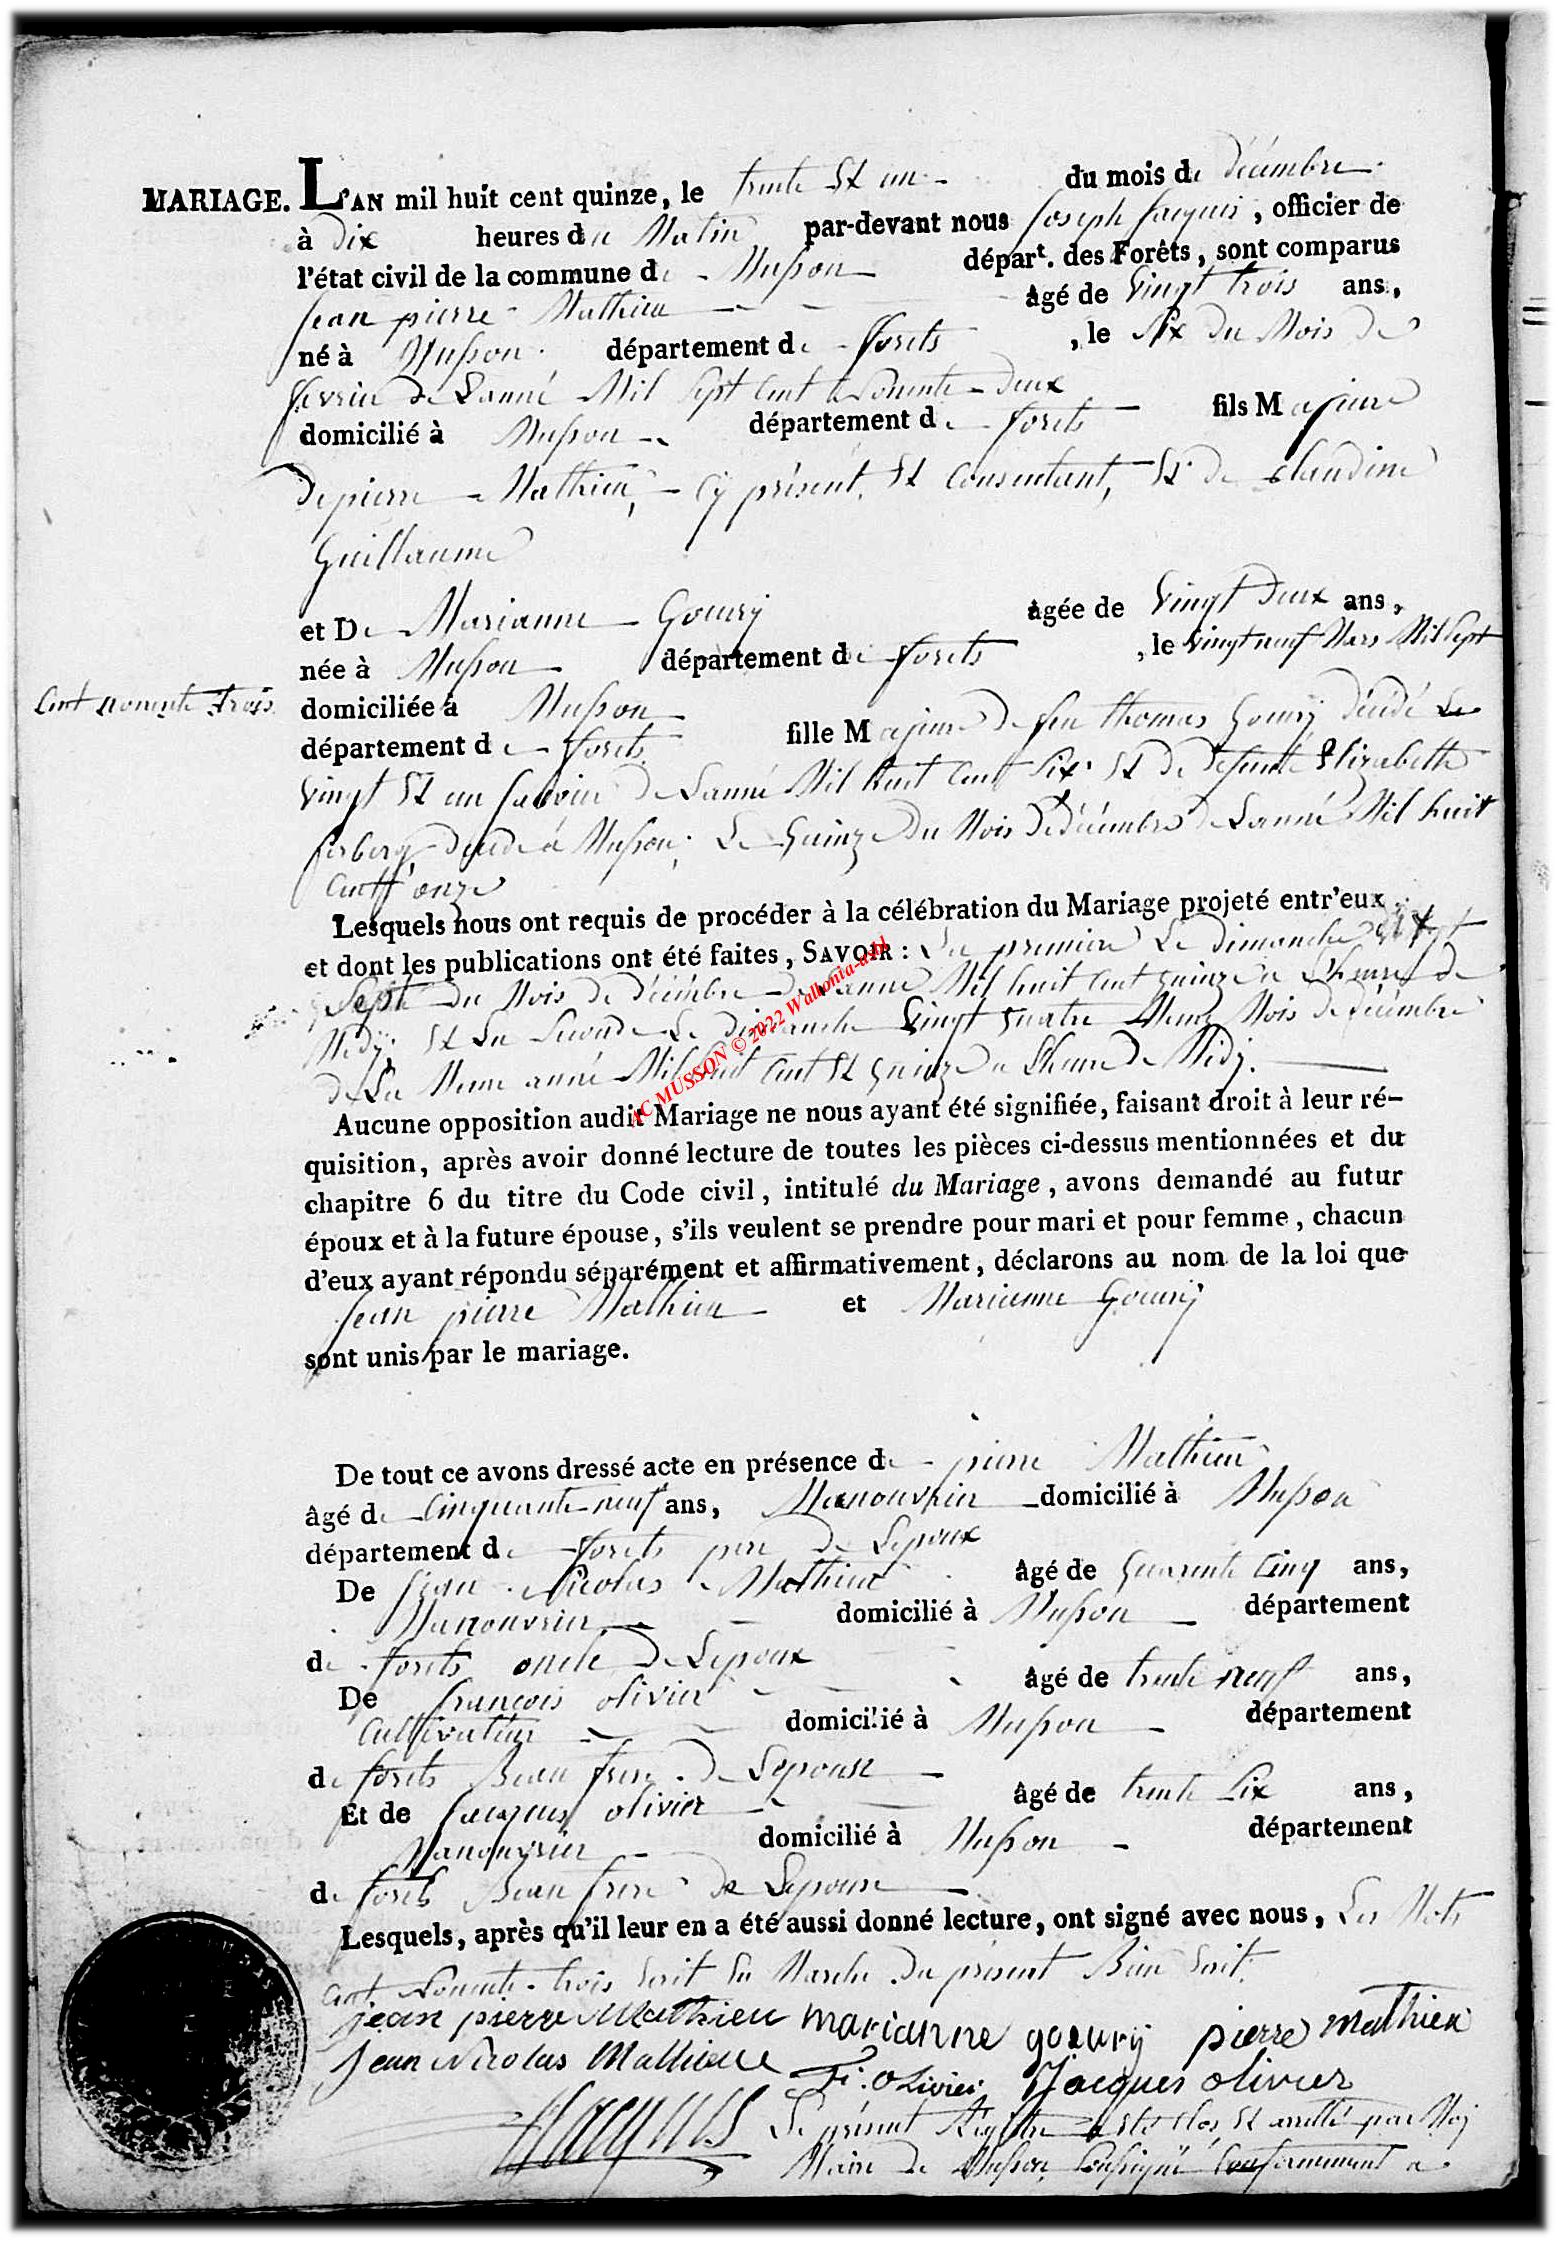 MARIAGE. L'AN mil huit cent quinze, le trente Et un du mois de décémbre
à dix heures du Matin par-devant nous Joseph Jacquis, officier de
l'état civil de la commune de Musson départ. des Forêts, sont comparus
Jean pierre Mathieu âgé de Vingt trois ans,
né à Musson département de forets, le Six du Mois de
fevrier de Lanné Mil Sept Cent Nonente deux
domicilié à Musson département de forets fils Majeure
de pierre Mathieu, Cÿ présent, Et Consentant, Et de Claudine
Guillaume
et De Marianne Goeury âgée de Vingt deux ans,
née à Musson département de forets, le vingt neuf Mars Mil Sept
Cent nonente trois
domiciliée à Musson fille Majeure de feu thomas Goeury décédé Le
département de forets
Vingt Et un de Lanné Mil huit Cent Six Et de défunte Elizabette
décédé à Musson, Le Quinze du Mois de décémbre de Lanné Mil huit
Cent onze
Lesquels nous ont requis de procéder à la célébration du Mariage projeté entr'eux
et dont les publications ont été faites, SAVOIR : La premiere Le dimanche
Sept du Mois de décémbre de Lanné Mil huit Cent quinze a L'heure de
Midÿ, Et La Seconde Le dimanche Vingt quatre Meme Mois de décémbre
de La Meme anné Mil huit Cent Et Quinze a L'heure de Midÿ.
Aucune opposition audit Mariage ne nous ayant été signifiée, faisant droit à leur ré-
quisition, après avoir donné lecture de toutes les pièces ci-dessus mentionnées et du
chapitre 6 du titre du Code civil, intitulé du Mariage, avons demandé au futur
époux et à la future épouse, s'ils veulent se prendre pour mari et pour femme, chacun
d'eux ayant répondu séparément et affirmativement, déclarons au nom de la loi que
Jean pierre Mathieu et Marianne Goeury
sont unis par le mariage.
De tout ce avons dressé acte en présence de pierre Mathieu
âgé de Cinquante neuf ans, Manouvrier domicilié à Musson
département de forets pere de Lepoux
De Jean Nicolas Mathieu âgé de Quarente Cinq ans,
Manouvrier domicilié à Musson département
de forets oncle de Lepoux
De françois olivier âgé de trente neuf ans,
Cultivateur domicilié à Musson département
de forets Beau frere de Lepouse
Et de Jacques olivier âgé de trente Six ans,
Manouvrier domicilié à Musson département
de forets Beau frere de Lepouse
Lesquels, après qu'il leur en a été aussi donné lecture, ont signé avec nous, Les Mots
Cent Nonente trois Ecrit En Marche du présent Bien Ecrit.
jean pierre Mathieu marianne goeury pierre mathieu
Jean Nicolas Mathieu F: Olivier Jacques olivier
Jacquis Le présent Régistre a été Clos Et arretté par Moÿ
Maire de Musson Soussigné Conformement a
AC MUSSON © 2022 Wallonia-asbl